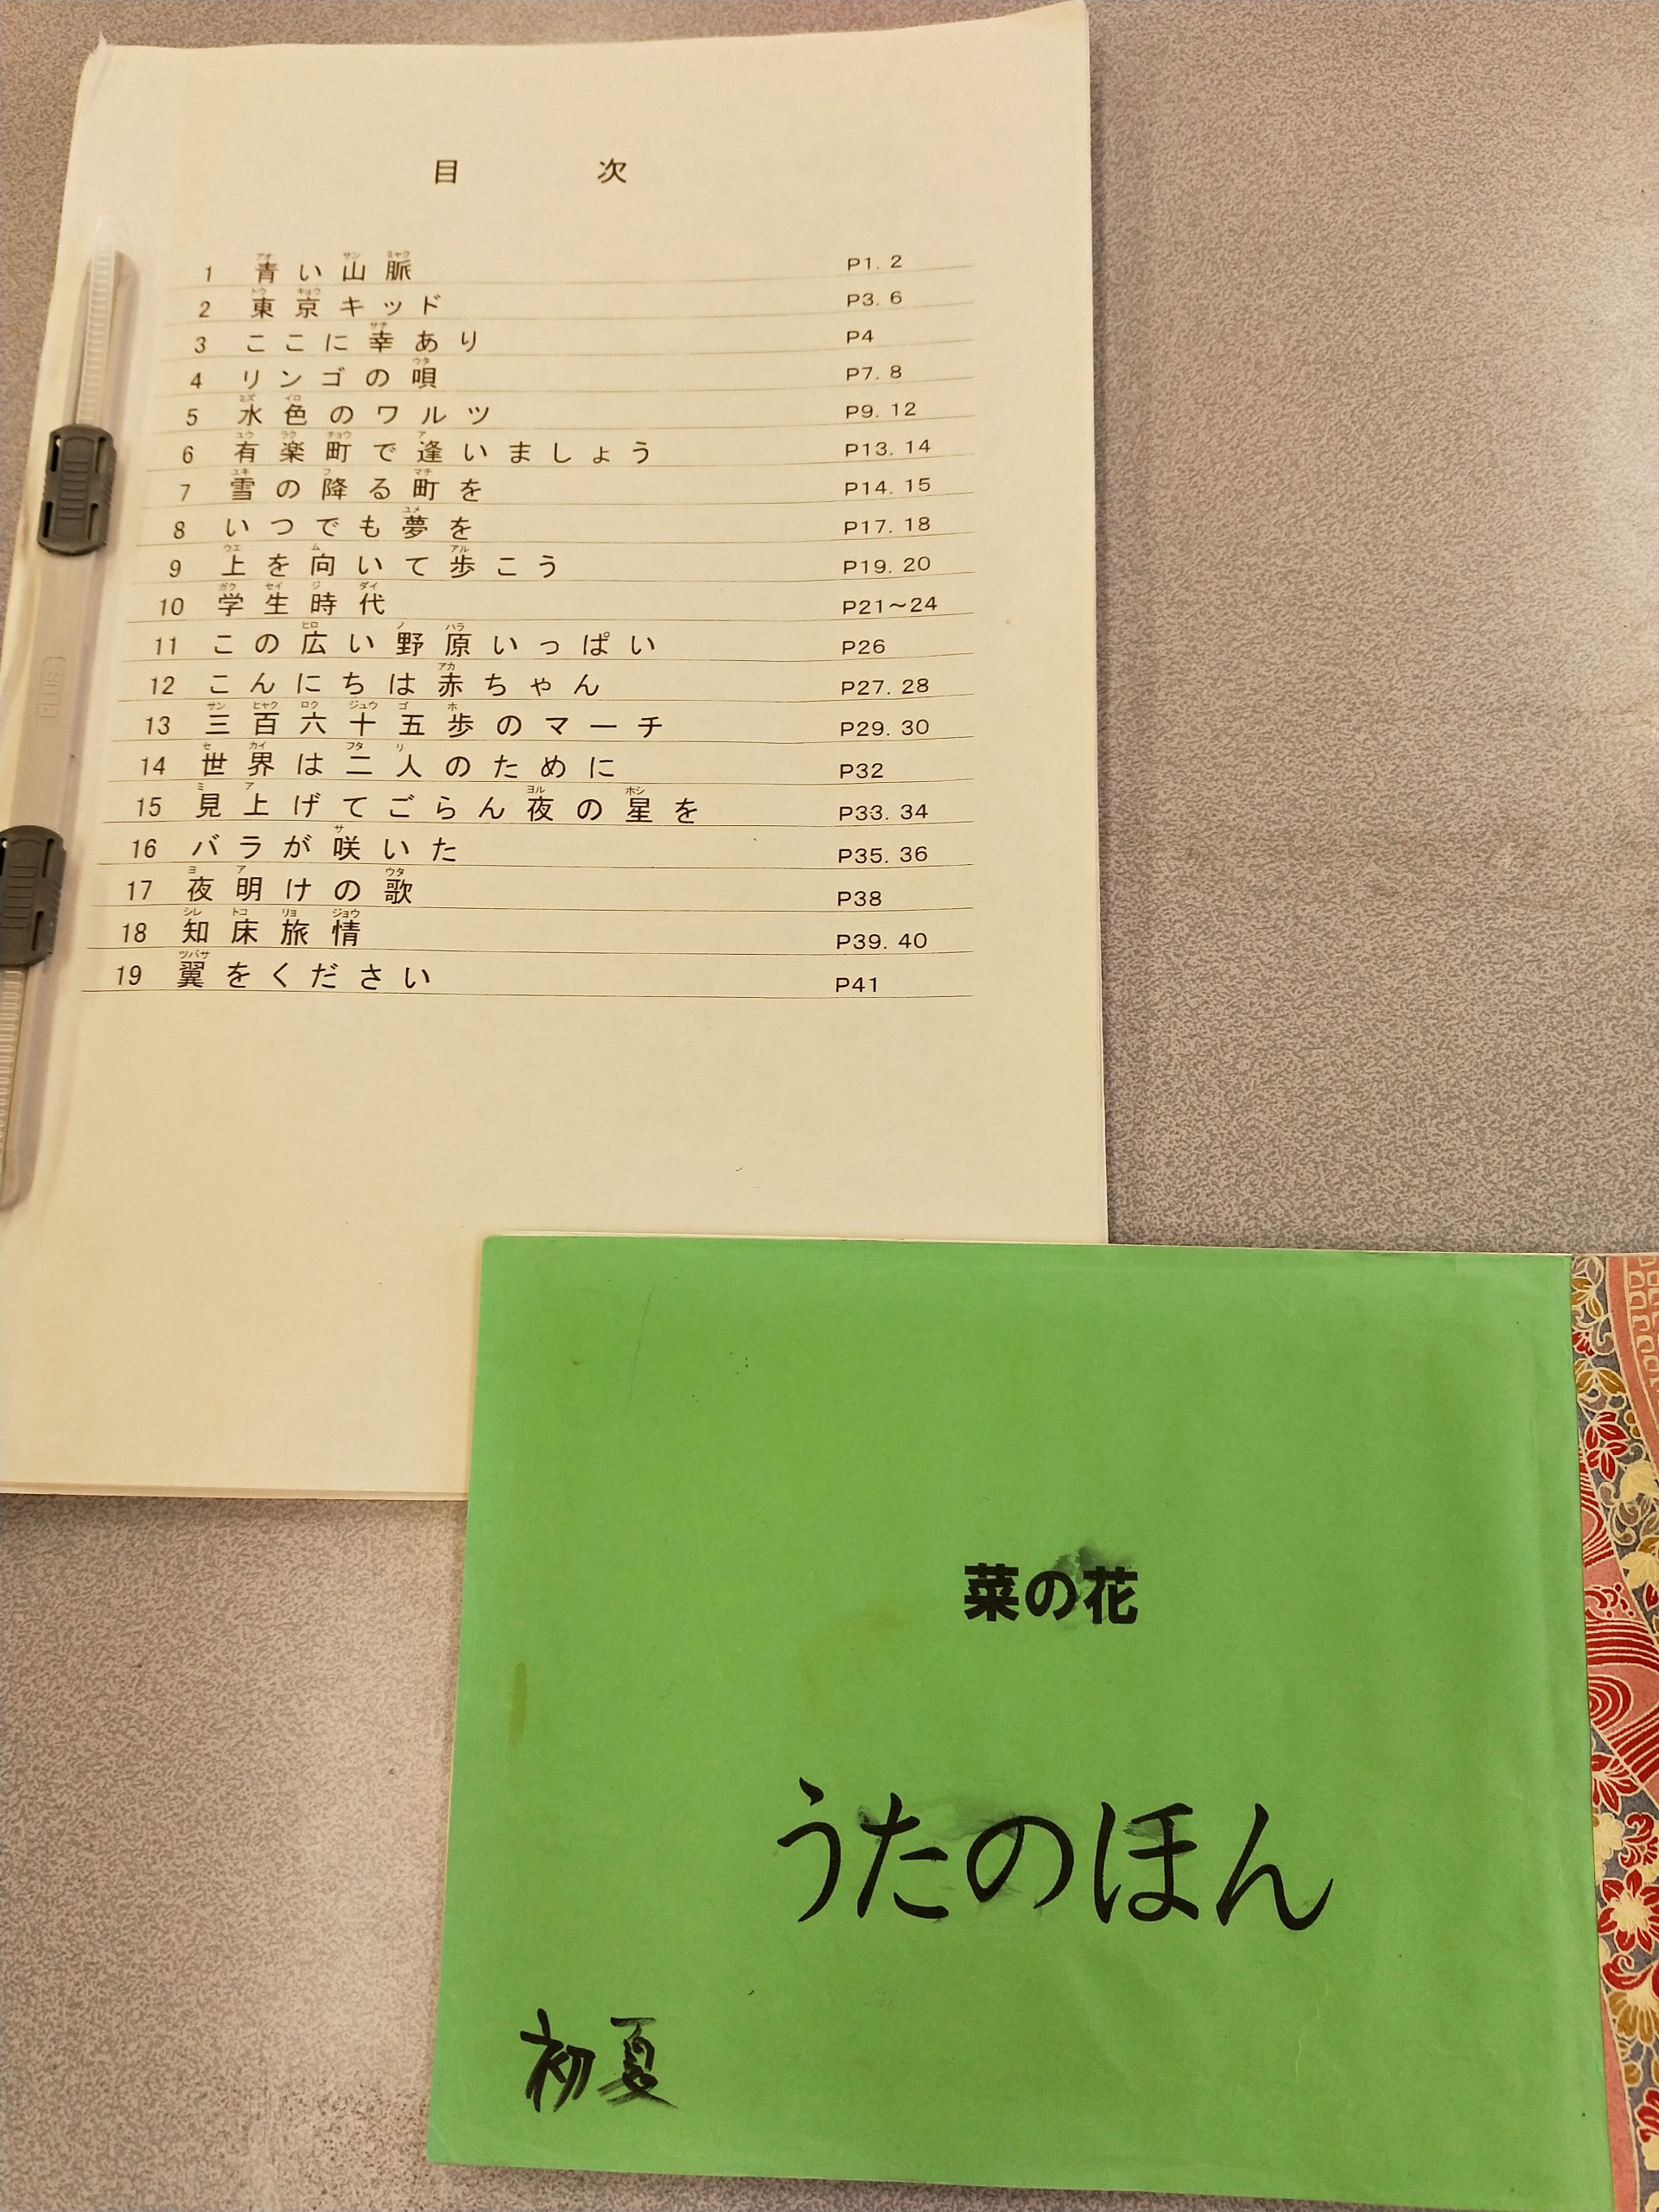 目次
1 青い山脈 P1. 2
2 東京キッド P3. 6
3 ここに幸あり P4
4 リンゴの唄 P7. 8
5 水色のワルツ P9. 12
6 有楽町で逢いましょう P13. 14
7 雪の降る町を P14. 15
8 いつでも夢を P17. 18
9 上を向いて歩こう P19. 20
10 学生時代 P21～24
11 この広い野原いっぱい P26
12 こんにちは赤ちゃん P27. 28
13 三百六十五歩のマーチ P29. 30
14 世界は二人のために P32
15 見上げてごらん夜の星を P33. 34
16 バラが咲いた P35. 36
17 夜明けの歌 P38
18 知床旅情 P39. 40
19 翼をください P41
菜の花
うたのほん
初夏